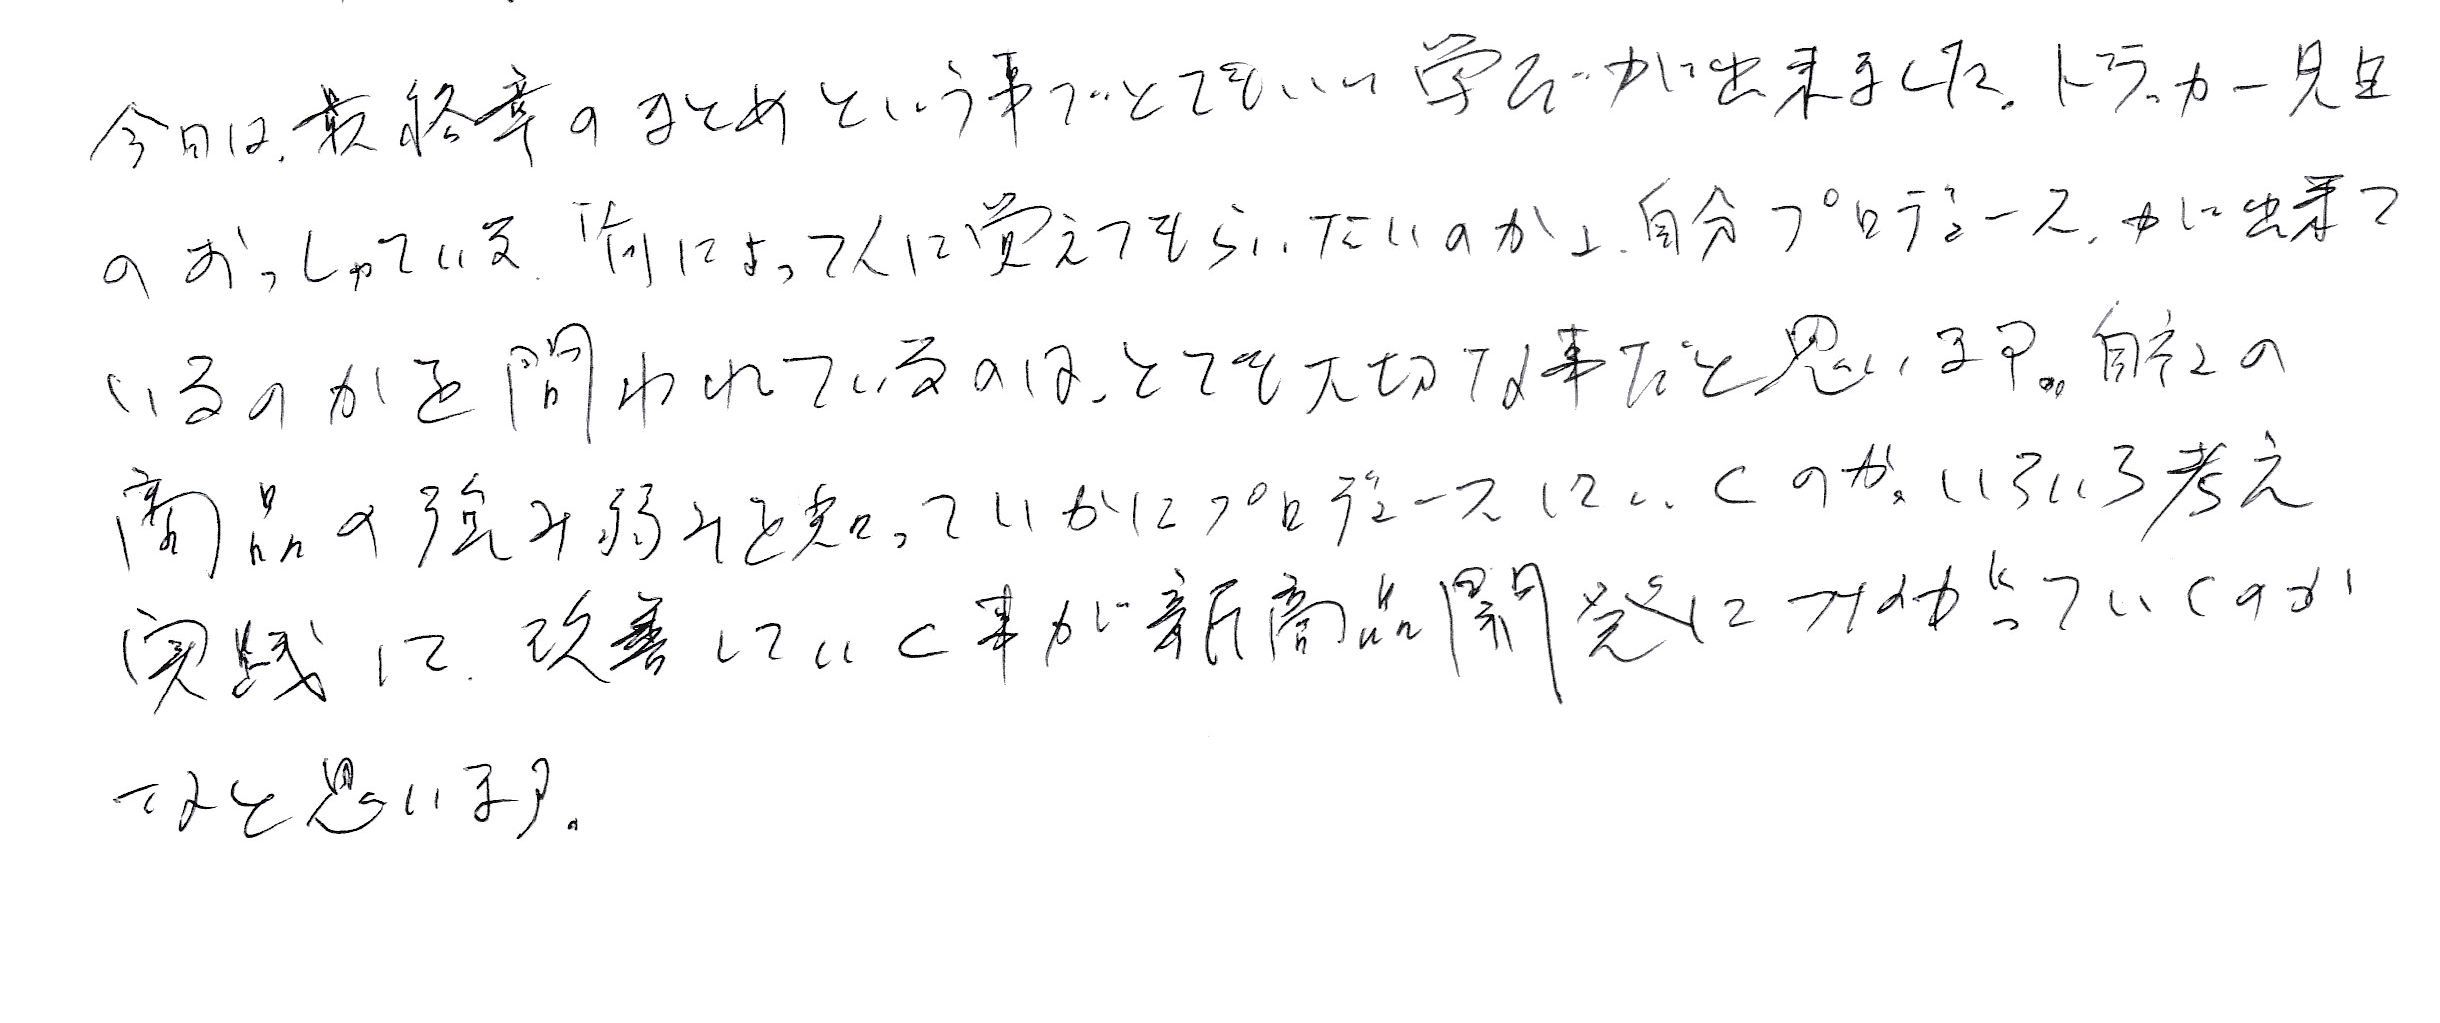 今日は、最終章のまとめという事でとてもいい学びが出来ました。ドラッカー
のおっしゃっている、「何によって人に覚えてもらいたいのか」、自分プロデュース、が出来て
いるのかを問われているのは、とても大切な事だと思います。自社の
商品の強み弱みを知っていかにプロデュースしていくのか。いろいろ考え
実践して、改善していく事が新商品開発につながっていくのか
なと思います。